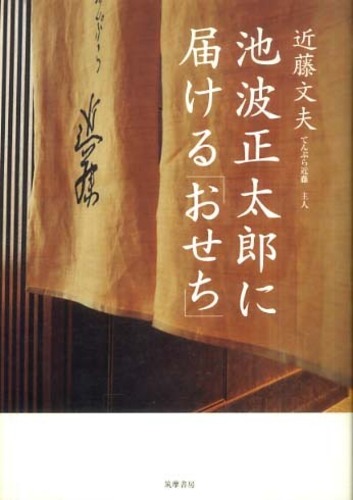 近藤文夫
てんぷら近藤 主人
池波正太郎に
届ける「おせち」
近藤
筑摩書房